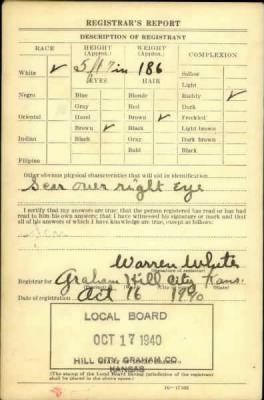 REGISTRAR'S REPORT
DESCRIPTION OF REGISTRANT
RACE HEIGHT (Approx.) WEIGHT (Approx.) COMPLEXION
White ✓ 5 ft 7 in 186 Sallow
EYES HAIR Light
Negro Blue Blonde Ruddy ✓
Gray Red Dark
Oriental Hazel Brown ✓ Freckled
Brown ✓ Black Light brown
Indian Black Gray Dark brown
Bald Black
Filipino
Other obvious physical characteristics that will aid in identification
Scar over right Eye
I certify that my answers are true; that the person registered has read or has had
read to him his own answers; that I have witnessed his signature or mark and that
all of his answers of which I have knowledge are true, except as follows:
Warren White
(Signature of registrar)
Registrar for Graham Hill City Kans.
Date of registration Oct 16 1940
LOCAL BOARD
OCT 17 1940
HILL CITY, GRAHAM CO.
KANSAS
(The stamp of the Local Board having jurisdiction of the registrant
shall be placed in the above space)